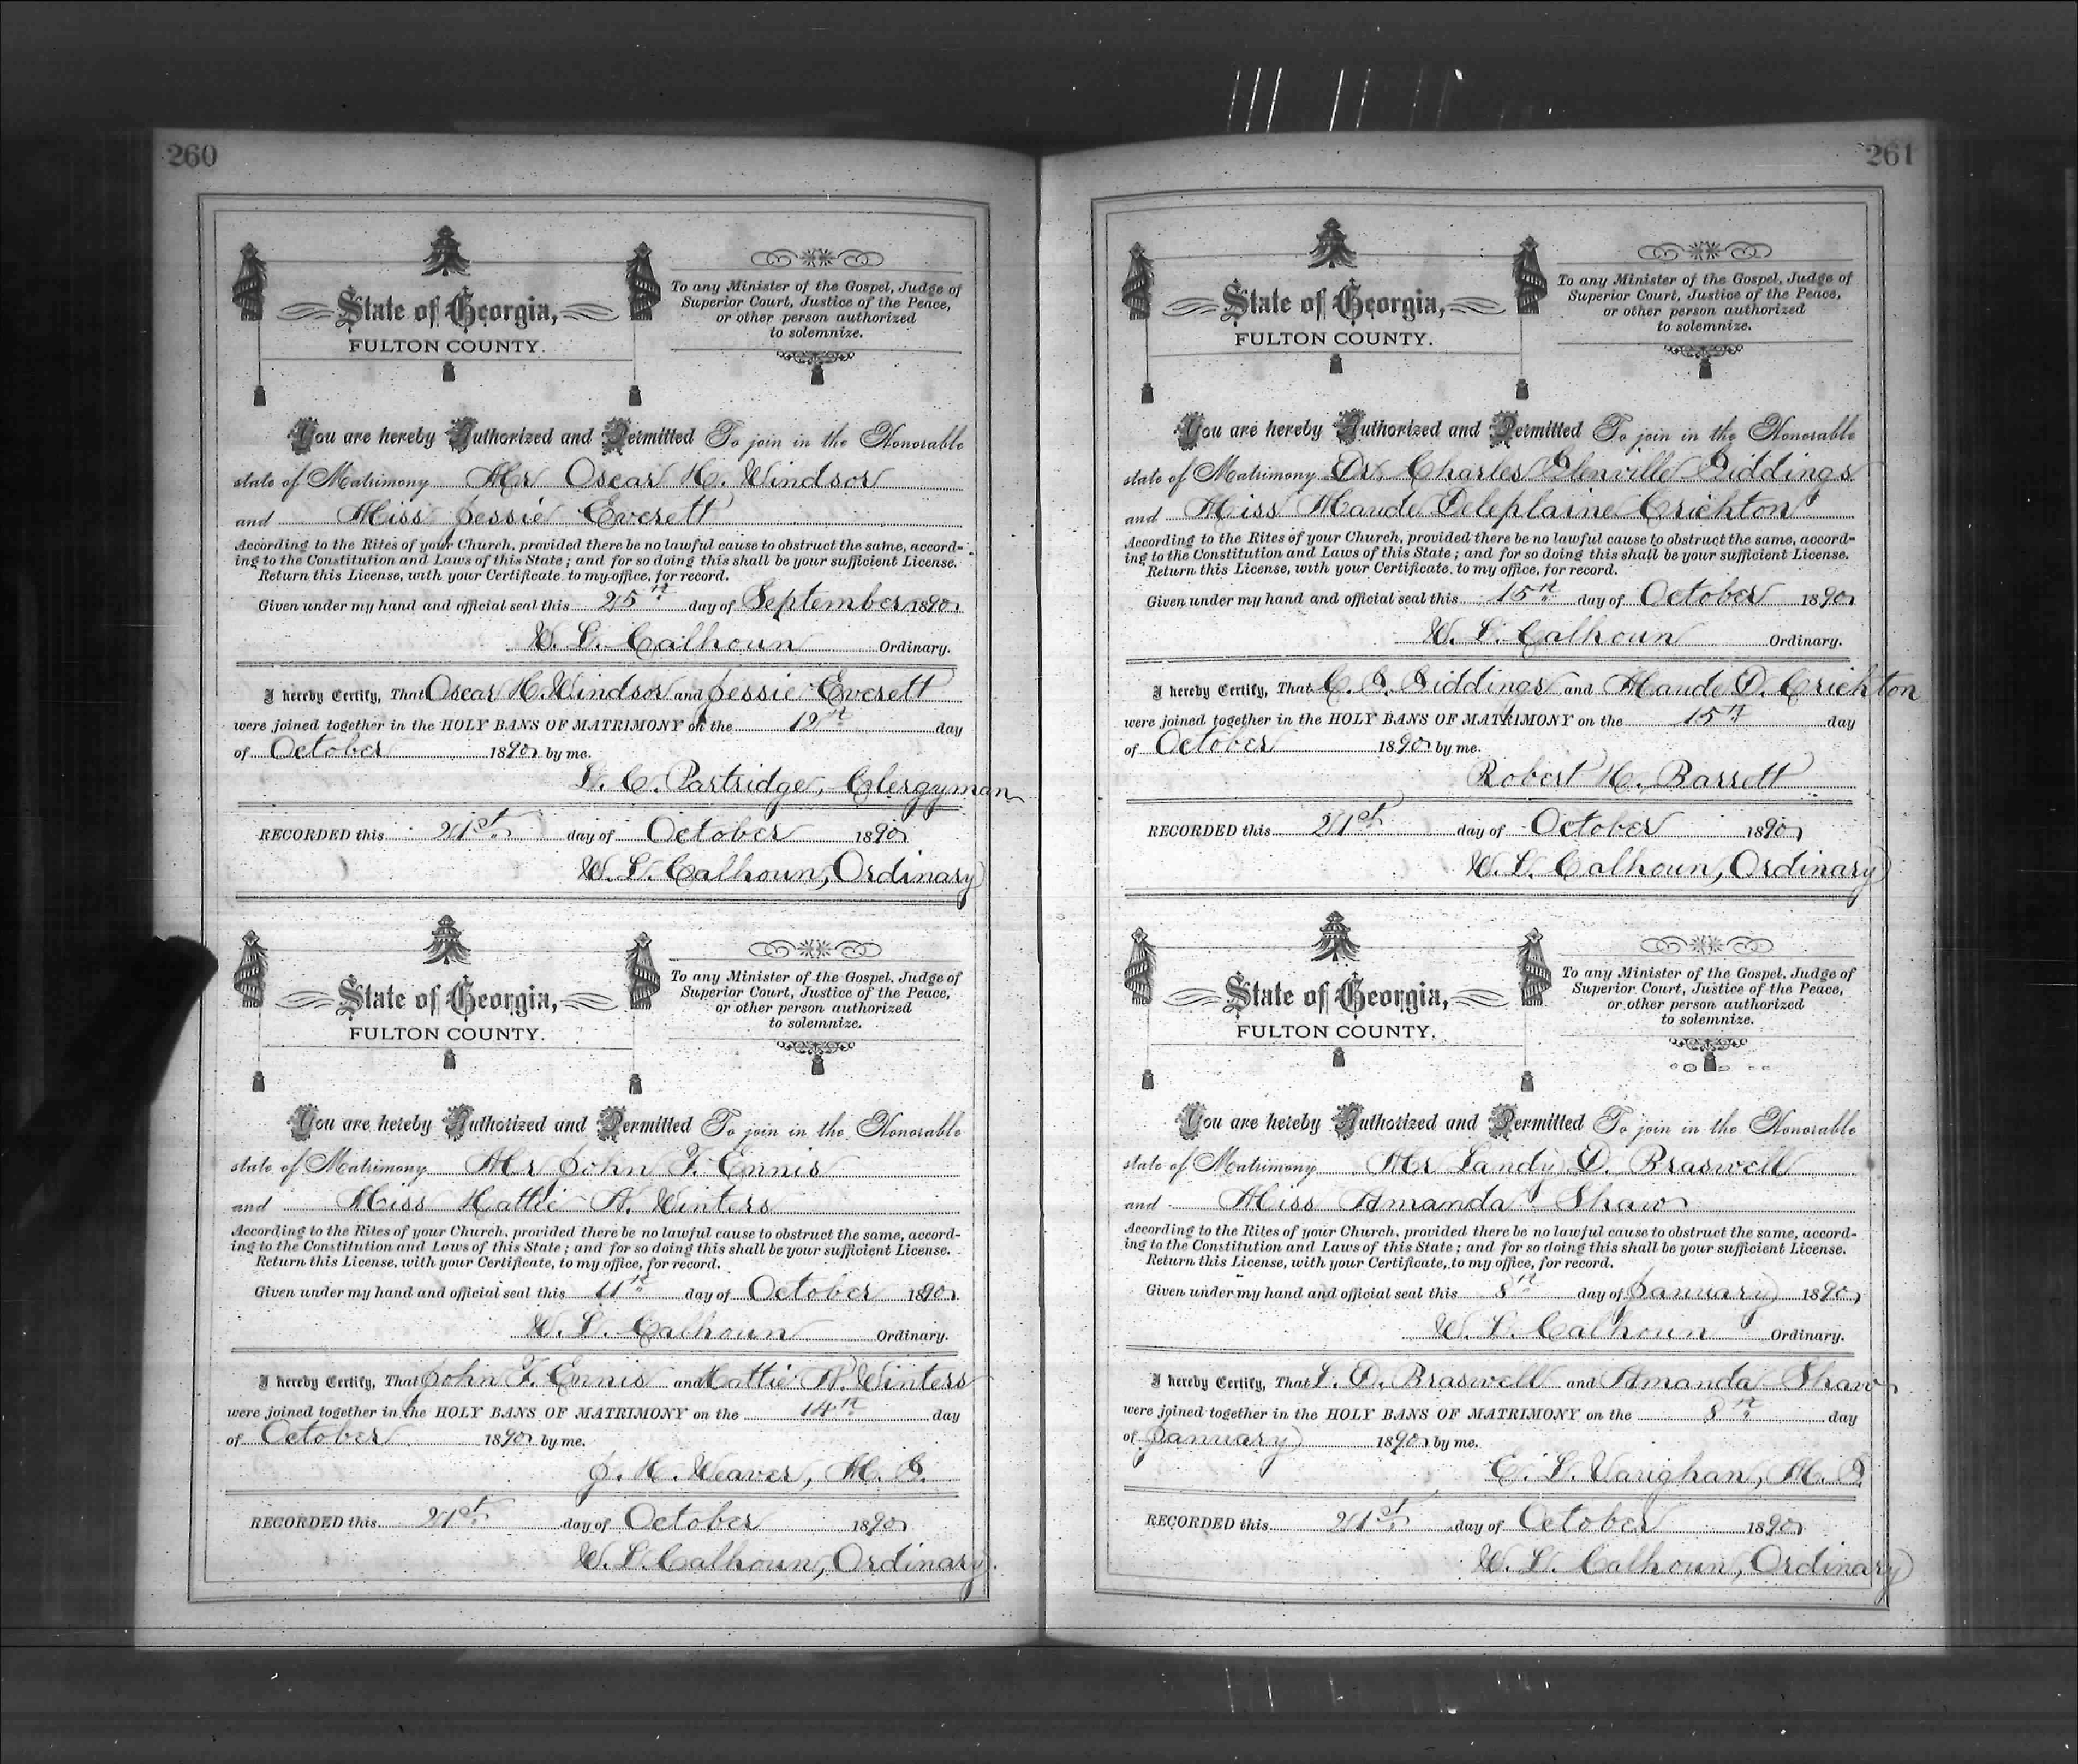 260
State of Georgia,
FULTON COUNTY.
To any Minister of the Gospel, Judge of
Superior Court, Justice of the Peace,
or other person authorized
to solemnize.
You are hereby Authorized and Permitted To join in the Honorable
state of Matrimony Mr Oscar H. Windsor
and Miss Jessie Everett
According to the Rites of your Church, provided there be no lawful cause to obstruct the same, accord-
ing to the Constitution and Laws of this State; and for so doing this shall be your sufficient License.
Return this License, with your Certificate, to my office, for record.
Given under my hand and official seal this 25th day of September 1890
W. L. Calhoun Ordinary.
I hereby Certify, That Oscar H. Windsor and Jessie Everett
were joined together in the HOLY BANS OF MATRIMONY on the 12th day
of October 1890 by me.
L. C. Partridge, Clergyman
RECORDED this 21st day of October 1890
W. L. Calhoun, Ordinary
State of Georgia,
FULTON COUNTY.
To any Minister of the Gospel, Judge of
Superior Court, Justice of the Peace,
or other person authorized
to solemnize.
You are hereby Authorized and Permitted To join in the Honorable
state of Matrimony Mr John F. Ennis
and Miss Hattie A. Winters
According to the Rites of your Church, provided there be no lawful cause to obstruct the same, accord-
ing to the Constitution and Laws of this State; and for so doing this shall be your sufficient License.
Return this License, with your Certificate, to my office, for record.
Given under my hand and official seal this 11th day of October 1890
W. L. Calhoun Ordinary.
I hereby Certify, That John F. Ennis and Hattie A. Winters
were joined together in the HOLY BANS OF MATRIMONY on the 14th day
of October 1890 by me.
J. H. Weaver, M. G.
RECORDED this 21st day of October 1890
W. L. Calhoun, Ordinary.
261
State of Georgia,
FULTON COUNTY.
To any Minister of the Gospel, Judge of
Superior Court, Justice of the Peace,
or other person authorized
to solemnize.
You are hereby Authorized and Permitted To join in the Honorable
state of Matrimony Dr. Charles Glenville Giddings
and Miss Maude Deleplaine Crichton
According to the Rites of your Church, provided there be no lawful cause to obstruct the same, accord-
ing to the Constitution and Laws of this State; and for so doing this shall be your sufficient License.
Return this License, with your Certificate, to my office, for record.
Given under my hand and official seal this 15th day of October 1890
W. L. Calhoun Ordinary.
I hereby Certify, That C. G. Giddings and Maude D. Crichton
were joined together in the HOLY BANS OF MATRIMONY on the 15th day
of October 1890 by me.
Robert H. Barrett
RECORDED this 21st day of October 1890
W. L. Calhoun, Ordinary
State of Georgia,
FULTON COUNTY.
To any Minister of the Gospel, Judge of
Superior Court, Justice of the Peace,
or other person authorized
to solemnize.
You are hereby Authorized and Permitted To join in the Honorable
state of Matrimony Mr Landy D. Braswell
and Miss Amanda Shaw
According to the Rites of your Church, provided there be no lawful cause to obstruct the same, accord-
ing to the Constitution and Laws of this State; and for so doing this shall be your sufficient License.
Return this License, with your Certificate, to my office, for record.
Given under my hand and official seal this 8th day of January 1890
W. L. Calhoun Ordinary.
I hereby Certify, That L. D. Braswell and Amanda Shaw
were joined together in the HOLY BANS OF MATRIMONY on the 8th day
of January 1890 by me.
E. L. Vaughan, M. G.
RECORDED this 21st day of October 1890
W. L. Calhoun, Ordinary